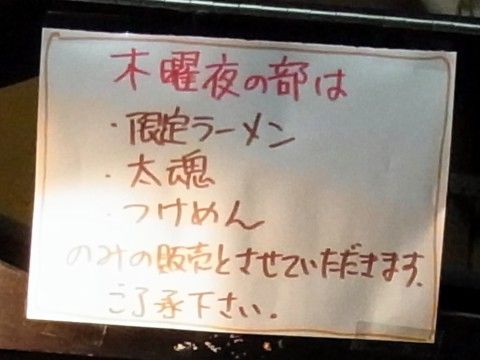 木曜夜の部は
・限定ラーメン
・太魂
・つけめん
のみの販売とさせていただきます。
ご了承下さい。